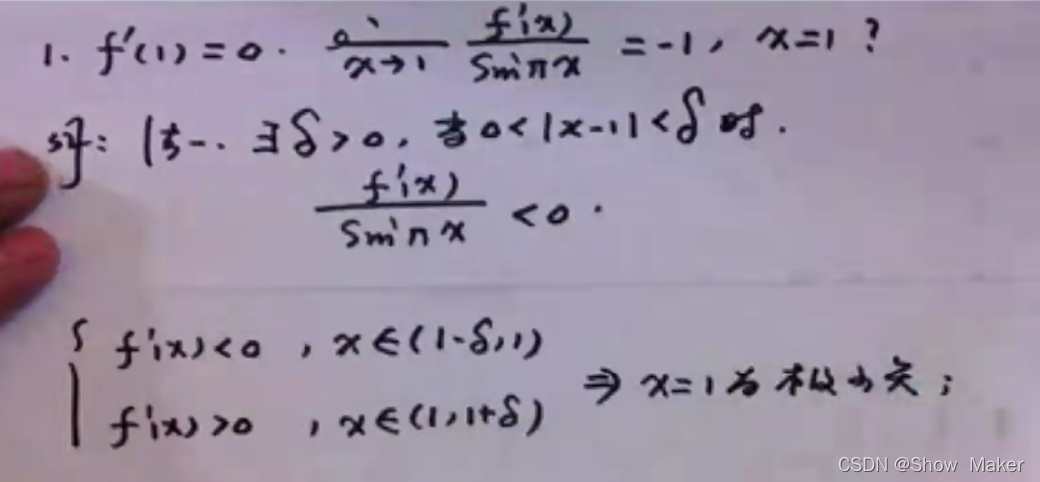 1. f'(1)=0. lim x→1 f'(x)/sinπx = -1, x=1?
解: 1° … ∃δ>0, 当0<|x-1|<δ时.
f'(x)/sinπx <0.
{ f'(x)<0, x∈(1-δ,1)
f'(x)>0, x∈(1,1+δ) ⇒ x=1为极小点;
CSDN @Show Maker